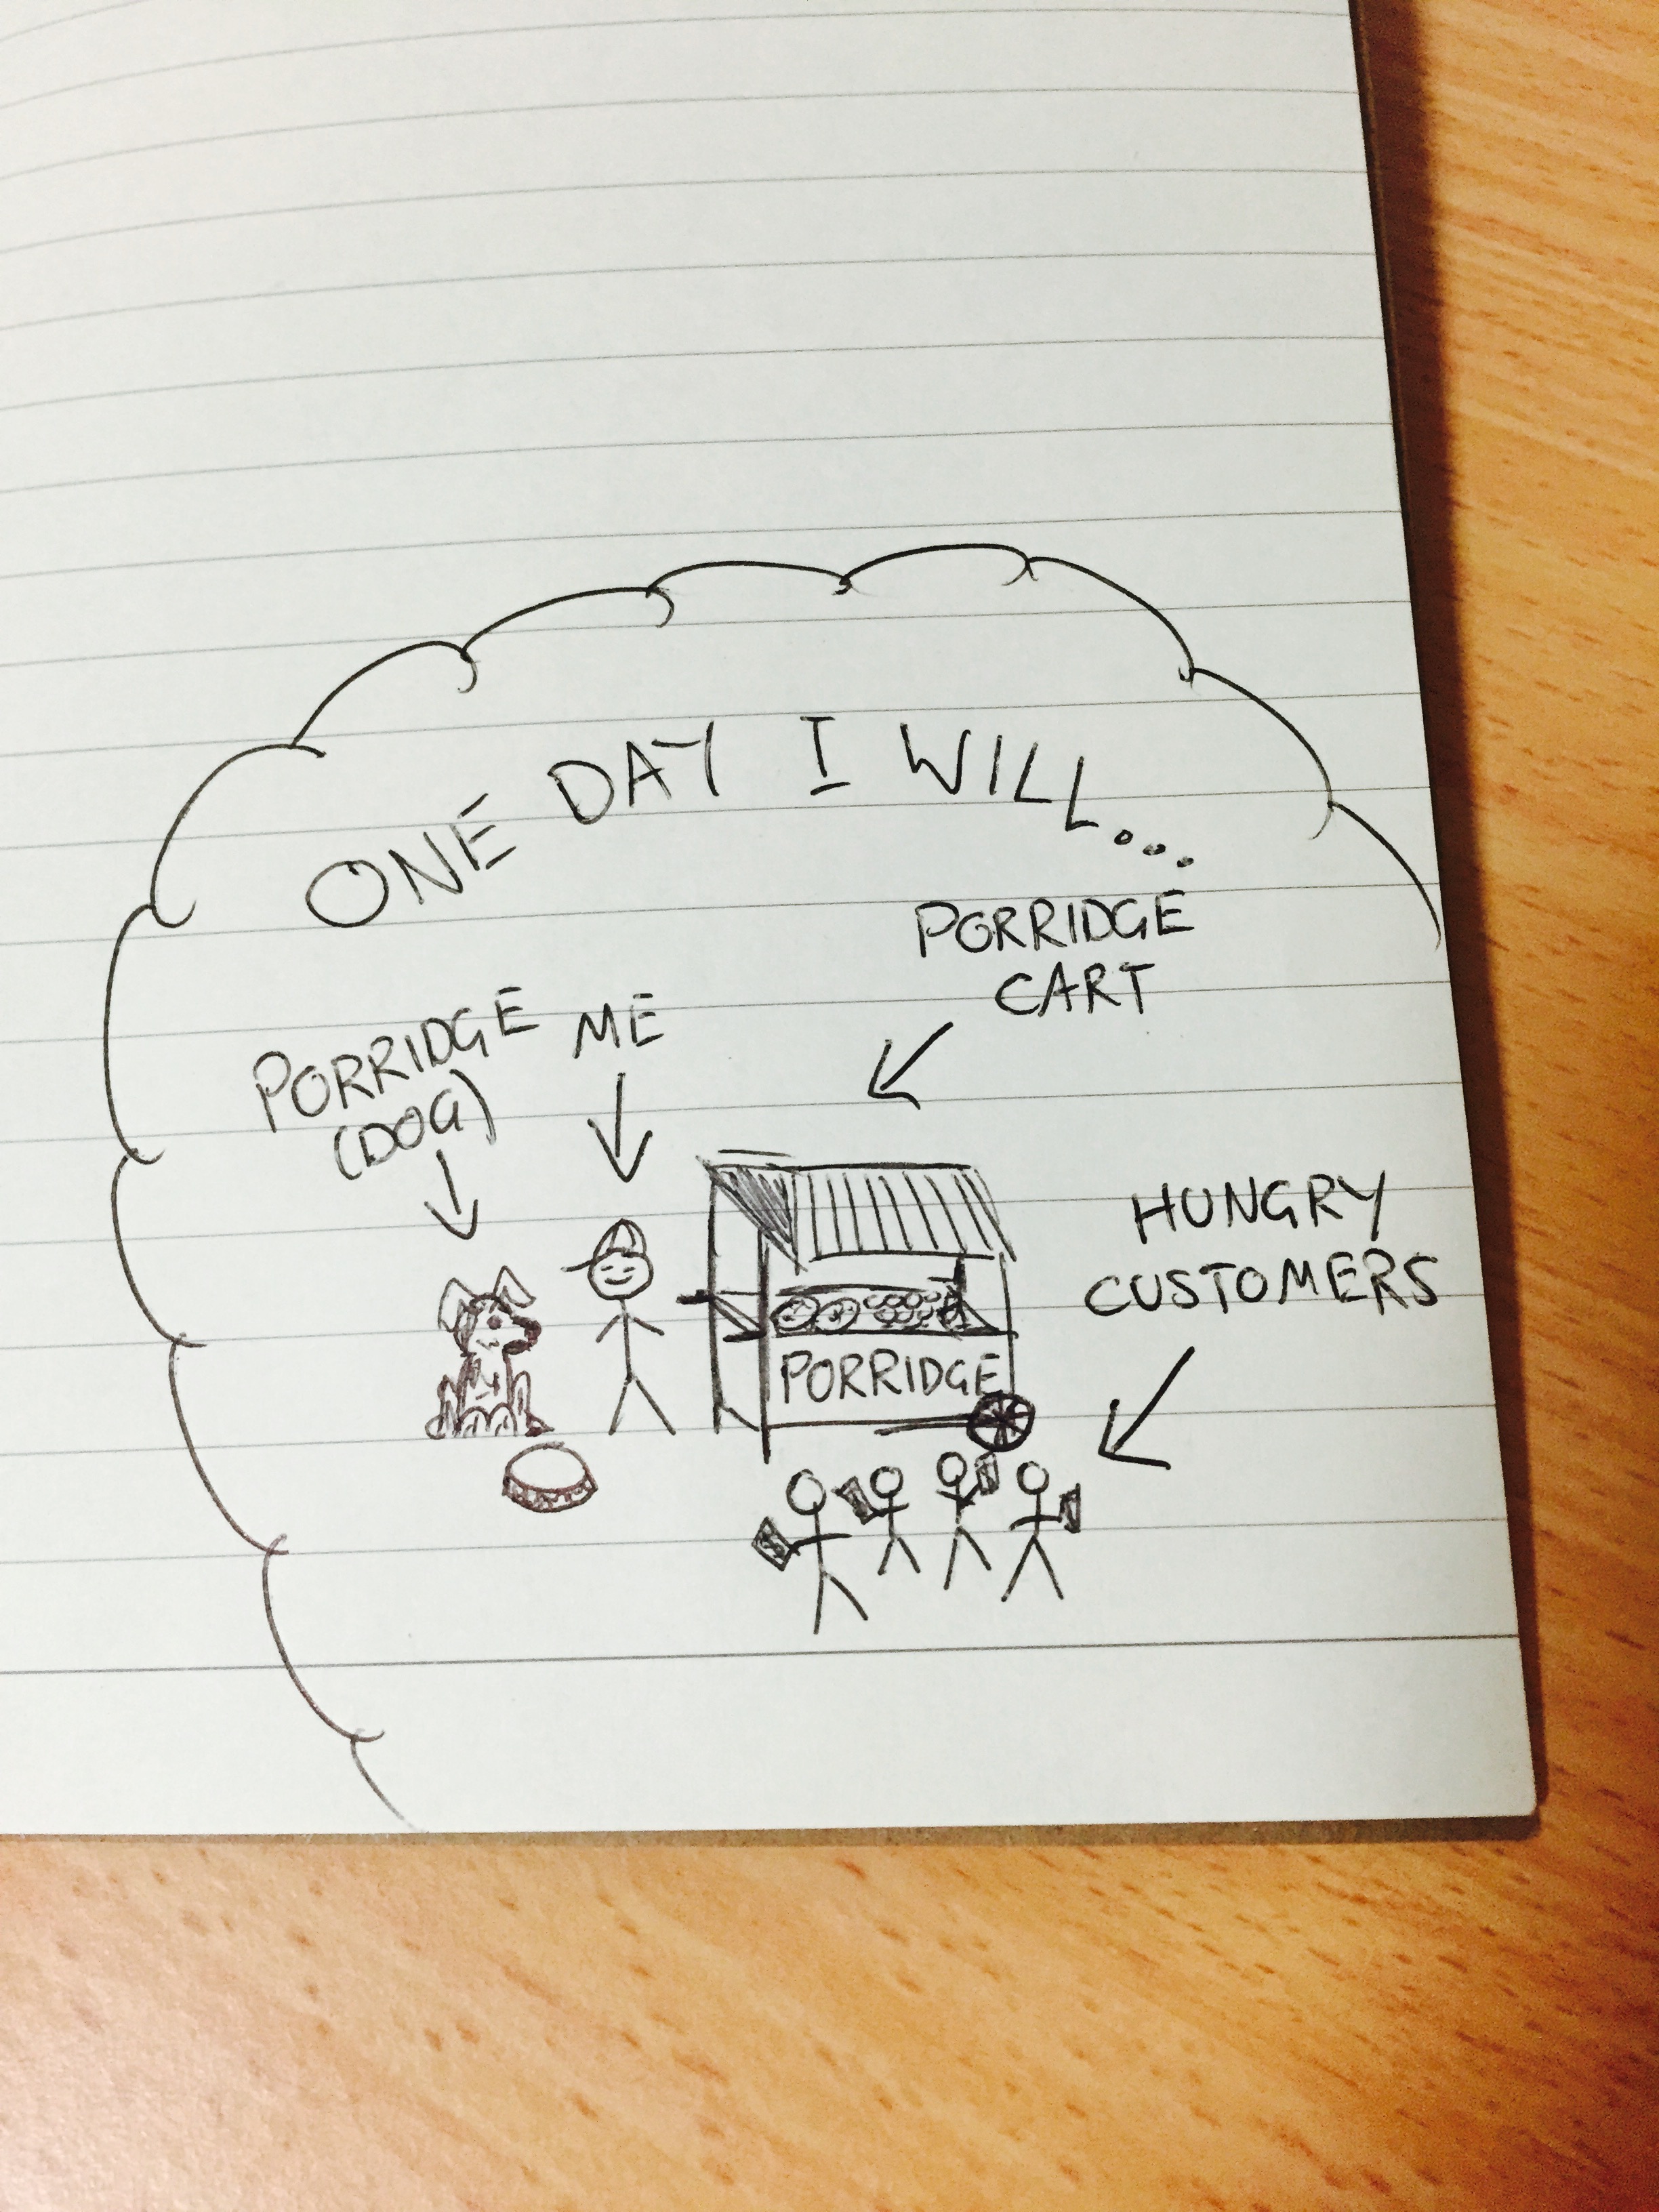 ONE DAY I WILL...
PORRIDGE
CART
PORRIDGE
(DOG)
ME
HUNGRY
CUSTOMERS
PORRIDGE